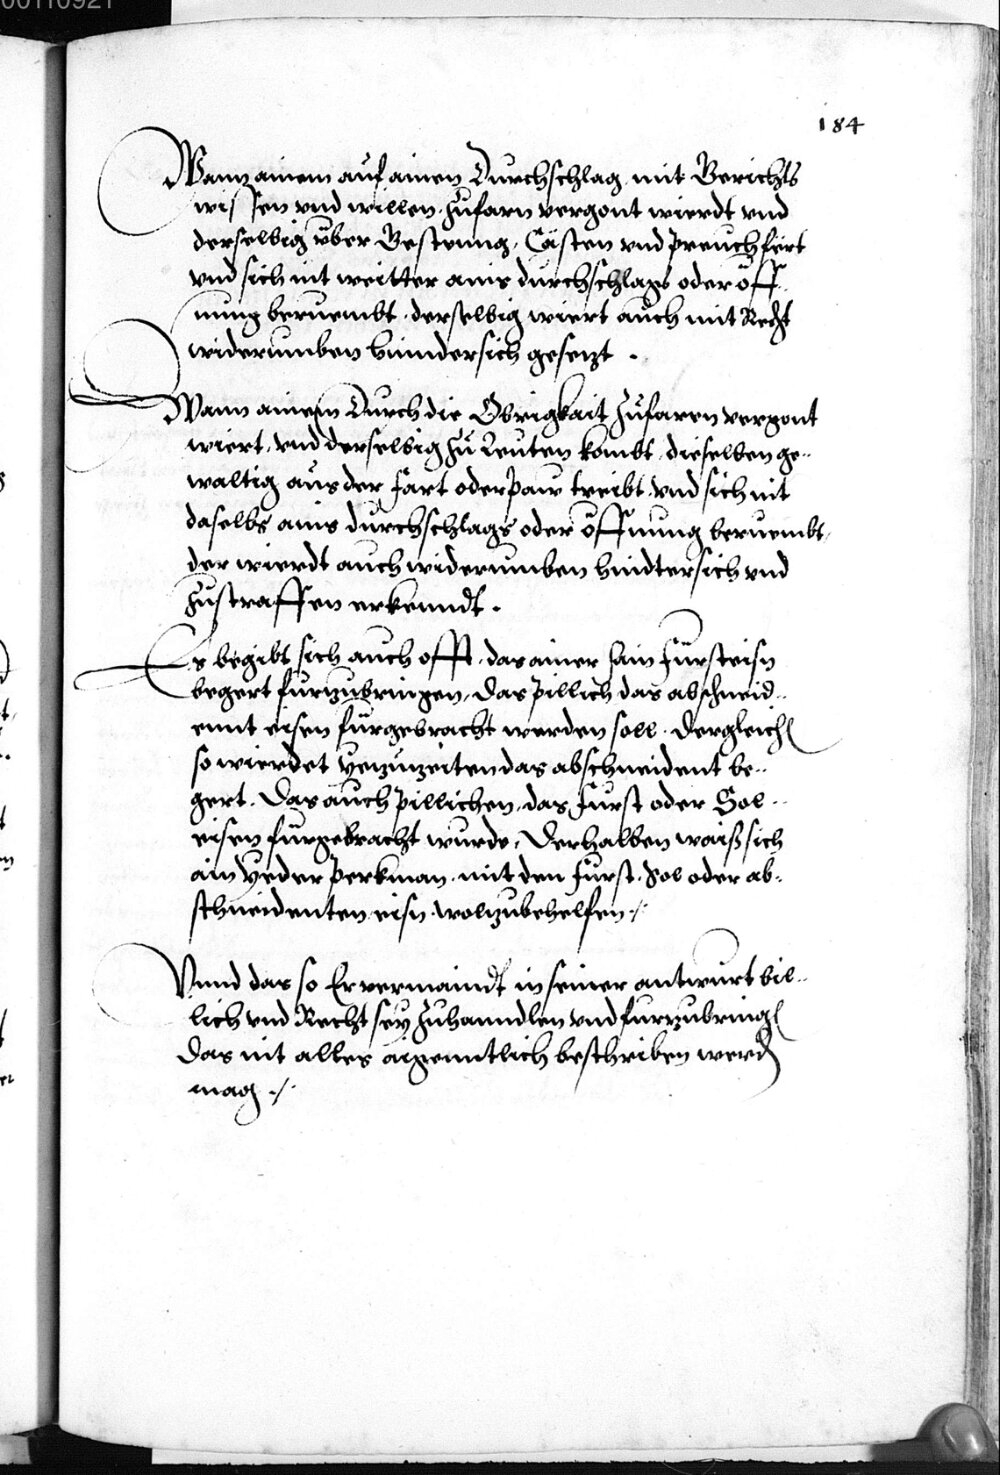 00110921
184
Wann ainem auf ainen Durchschlag mit Gerichts
wissen vnd willen zufarn vergont wierdt vnd
derselbig vber Vestenng, Cässten vnd preuch fert
vnd sich nit weitter ains durchschlags oder öff-
nung beruembt, derselbig wiert auch mit Recht
widerumben hinndersich gesetzt.
Wann ainem Durch die Obrigkait zufaren vergont
wiert, vnd derselbig zu Leuten kombt, dieselben ge-
waltig aus der fart oder paw treibt vnd sich nit
daselbs ains durchschlags oder öffnung beruembt,
der wierdt auch widerumben hindtersich vnd
zustraffen erkenndt.
Es begibt sich auch offt, das ainer sain fürsteisn
begert furzubringen, Das pillich das abschneid-
ennt eisen fürgebracht werden soll. Dergleich
so wierdet yezunzeiten das abschneident be-
gert. Das auch pillichen, das furst oder Sol-
eisen fürgebracht wurde, Derhalben waiß sich
ain yeder perkman mit den furst. Sol oder ab-
schneidenten eisn wol zubehelfen ./.
Vnnd das so Er vermaindt in seiner antwurt bil-
lich vnd Recht sey zuhanndlen vnd furzubring
Das nit alles aigenntlich beschriben werd
mag ./.